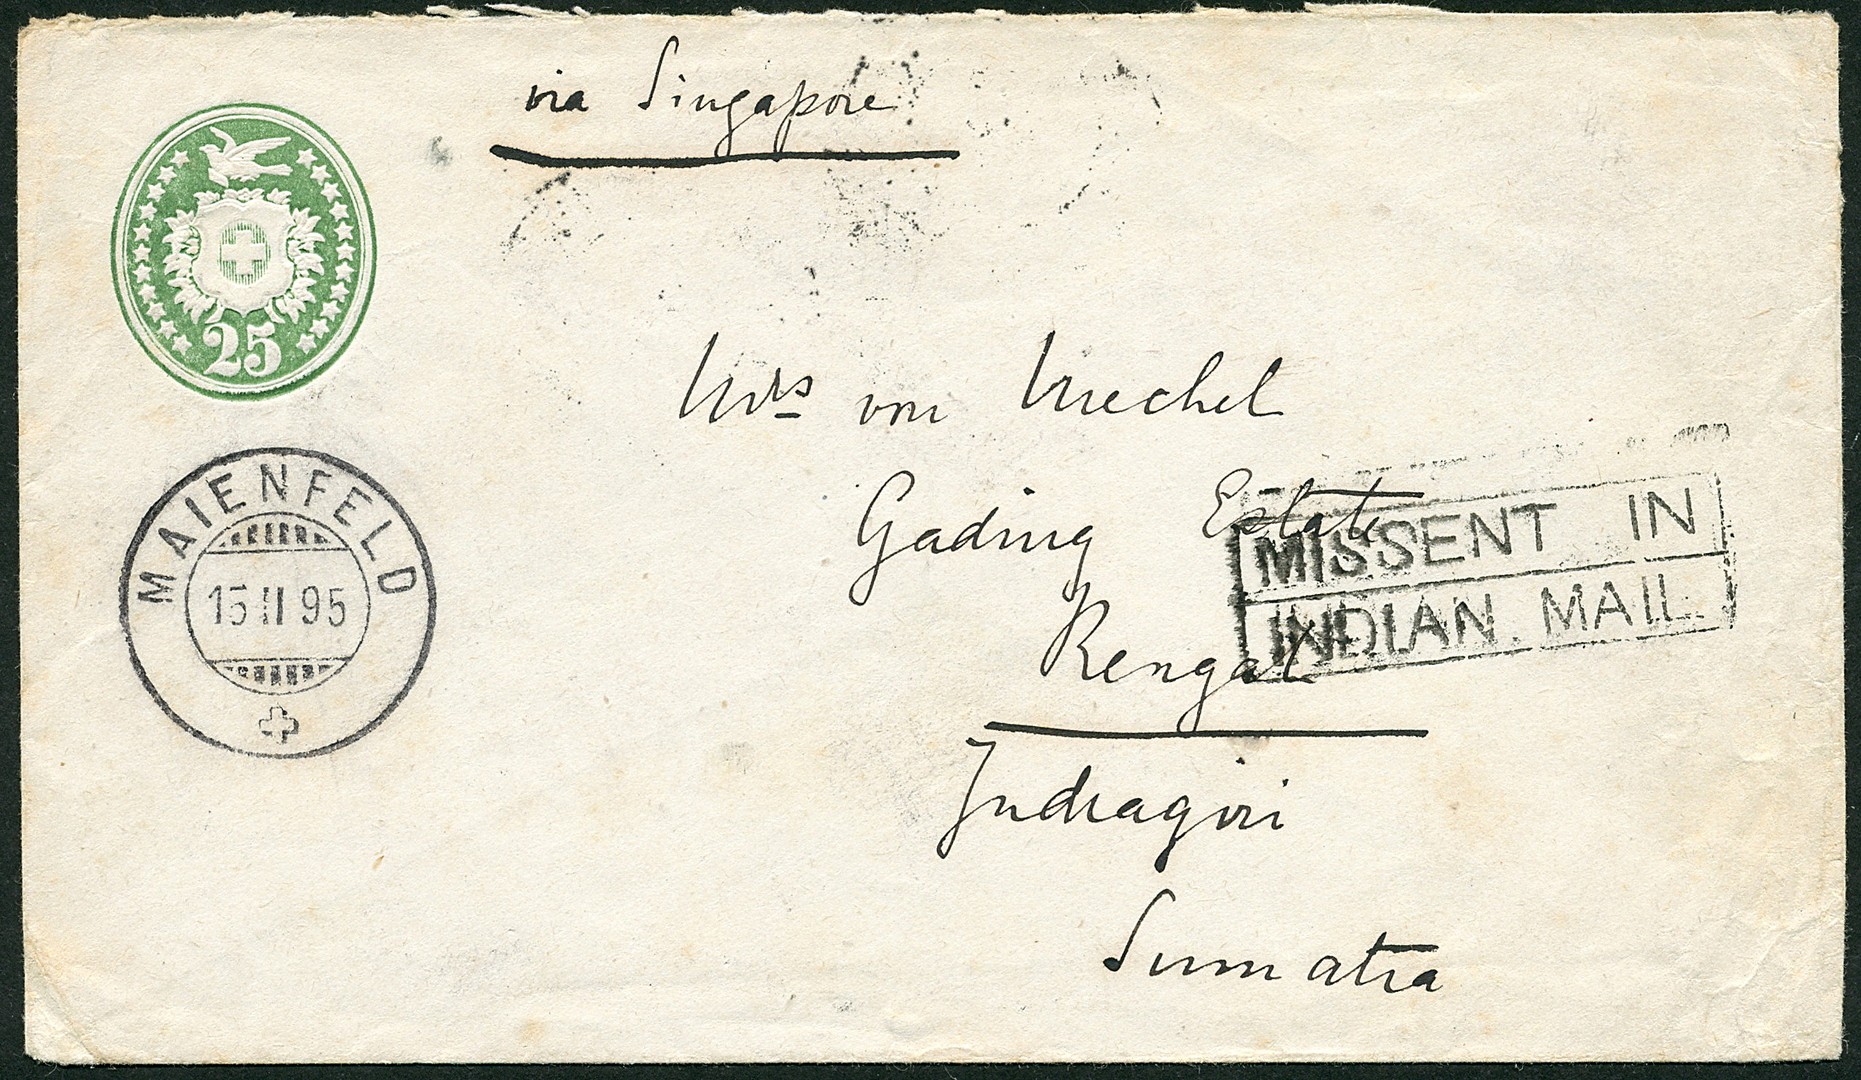 via Singapore
25
Mrs von Mechel
Gading Estate
Rengat
Indragiri
Sumatra
MAIENFELD
15 II 95
MISSENT IN
INDIAN MAIL.